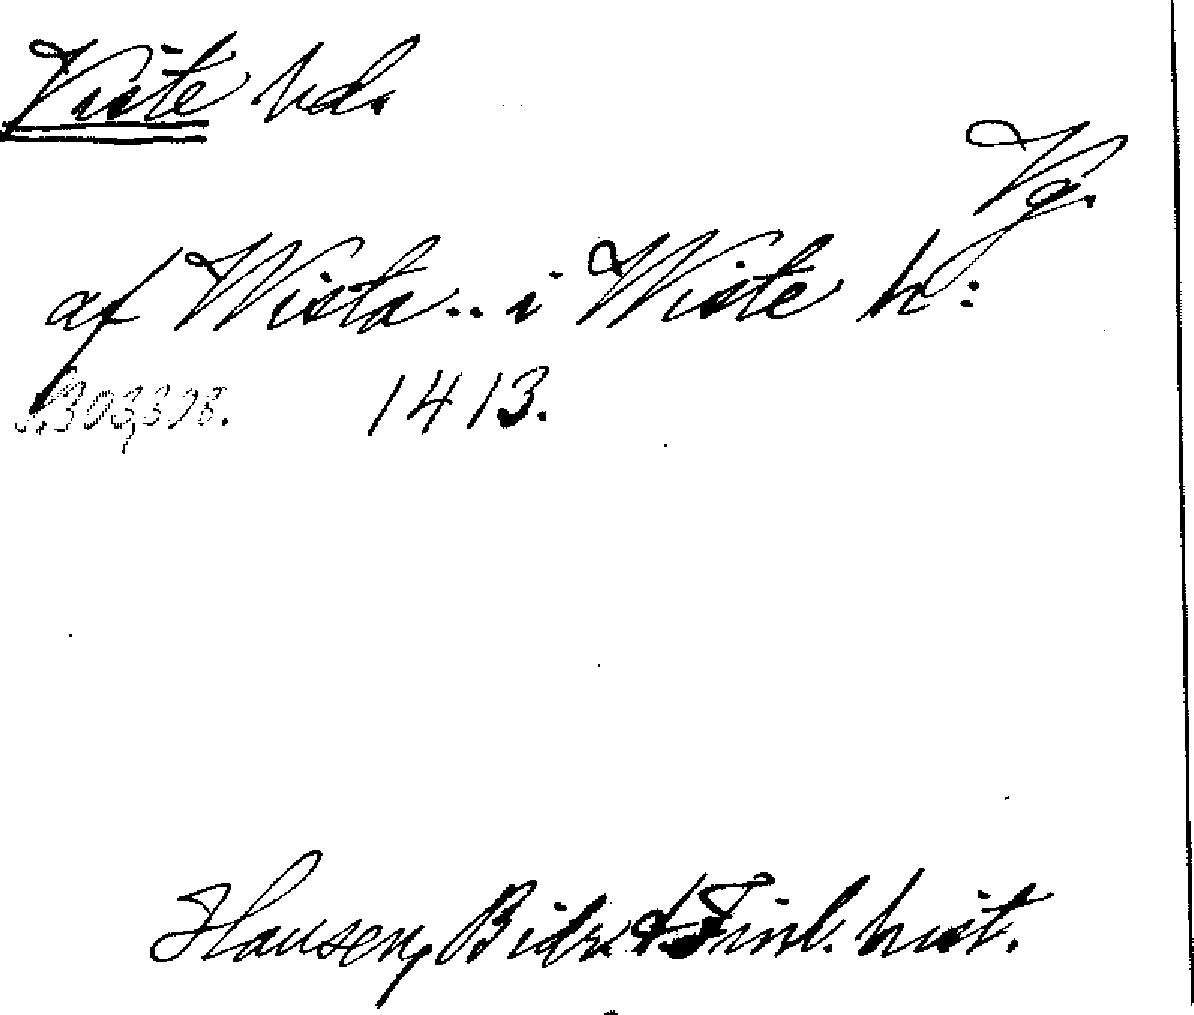 Viste hd.
Vg.
af Wista .. i Wiste h:
s. 303, 398. 1413.
Hausen, Bidr. t. Finl. hist.